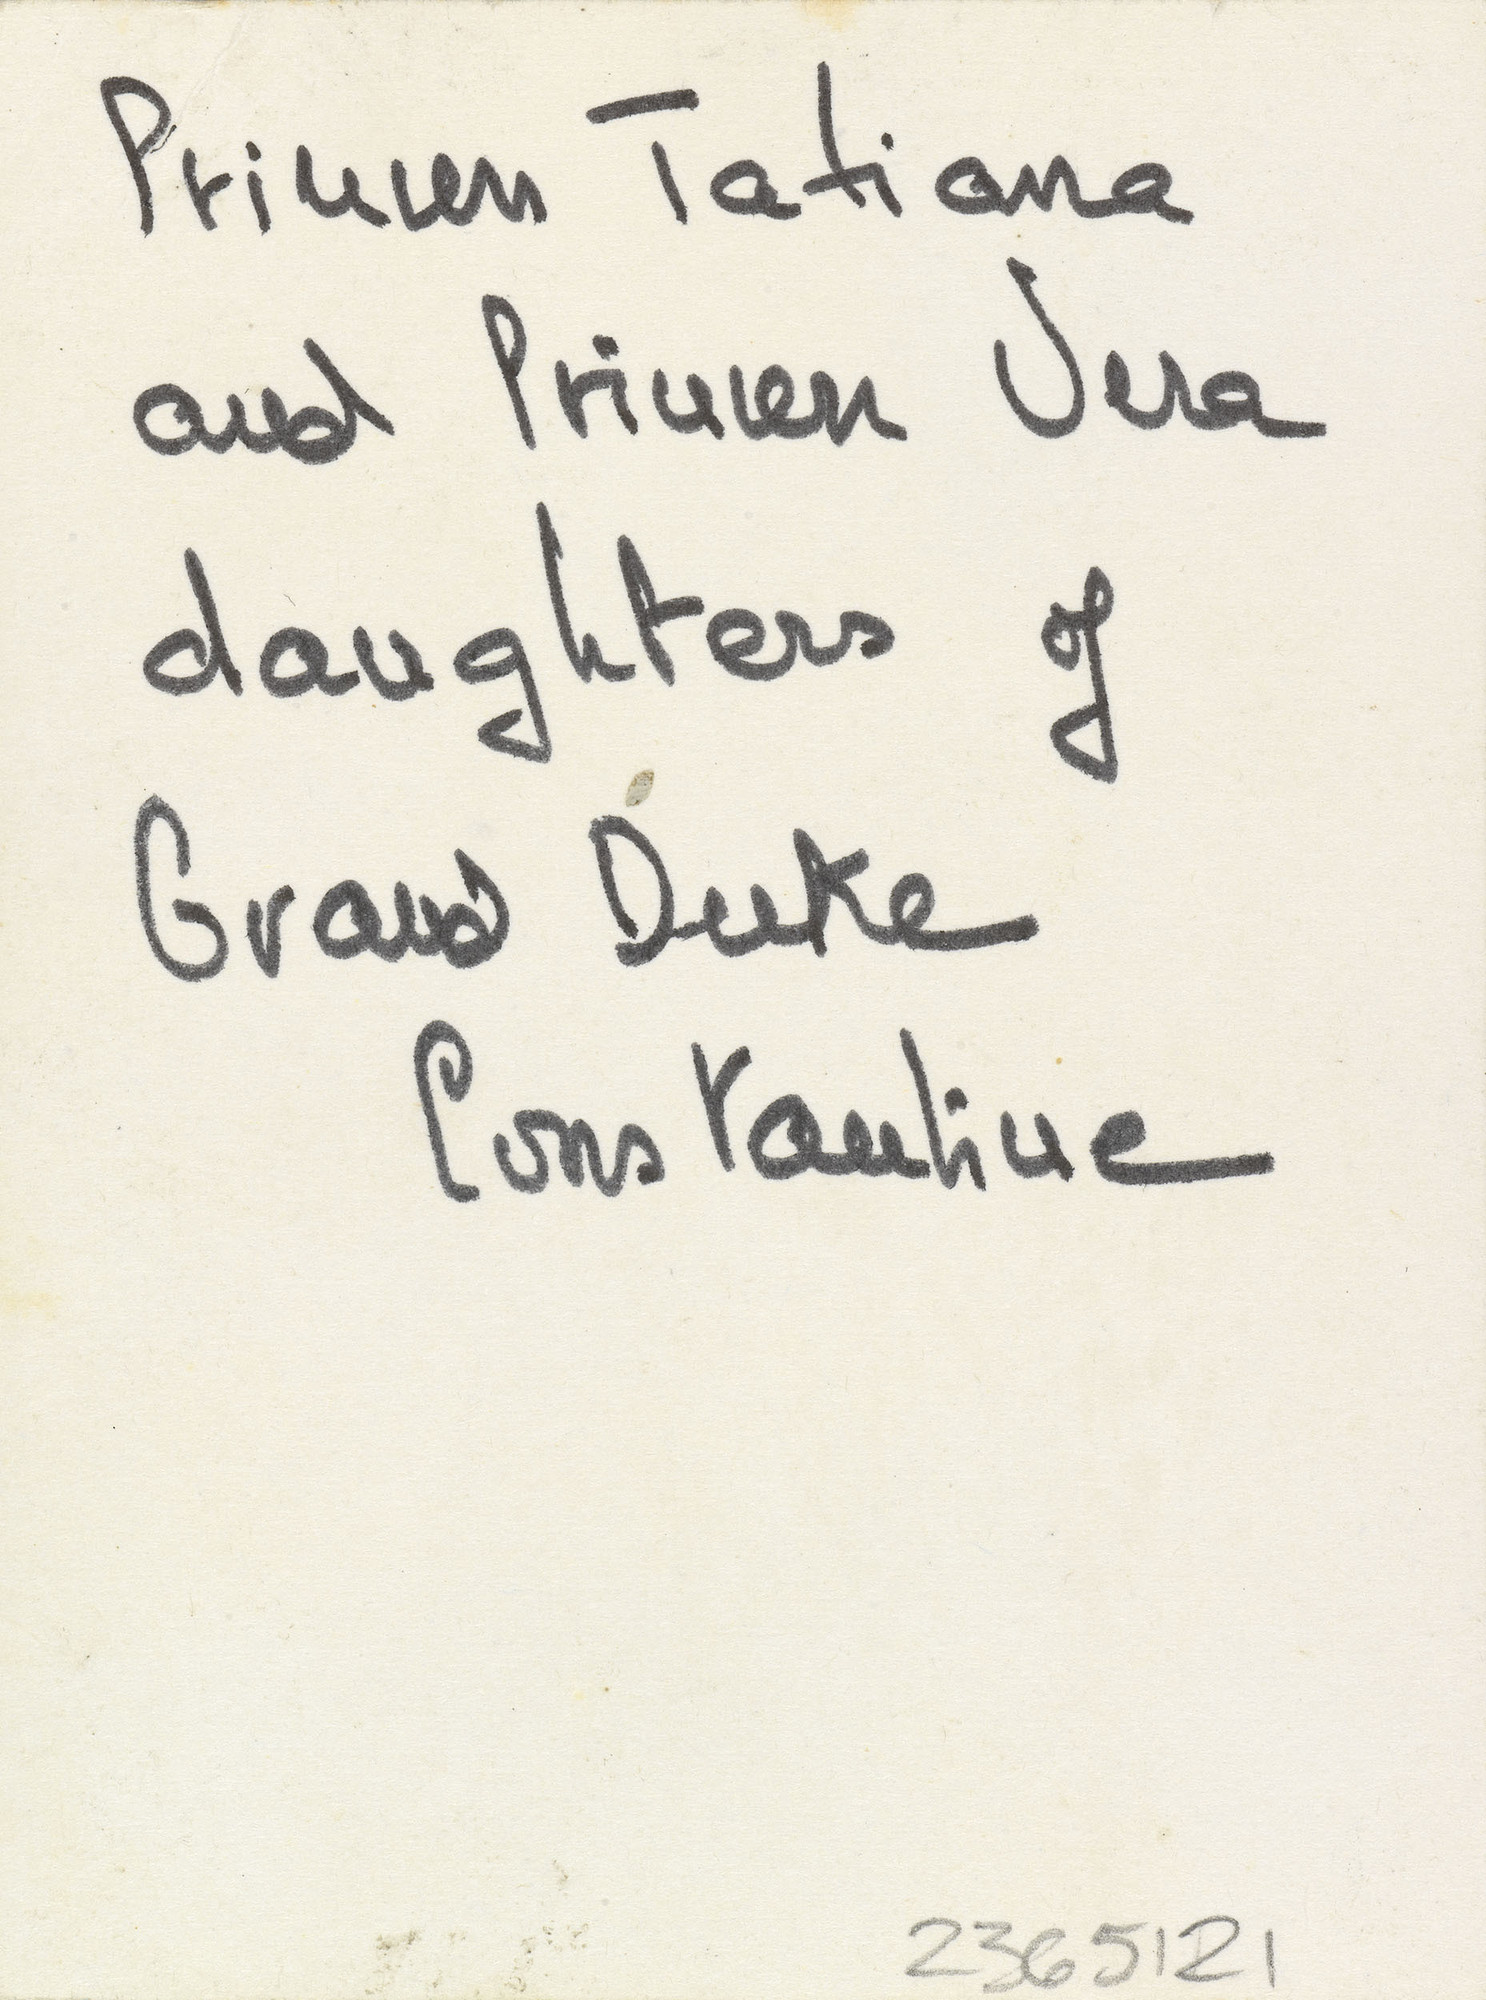 Princess Tatiana
and Princess Vera
daughters of
Grand Duke
Constantine
2365121